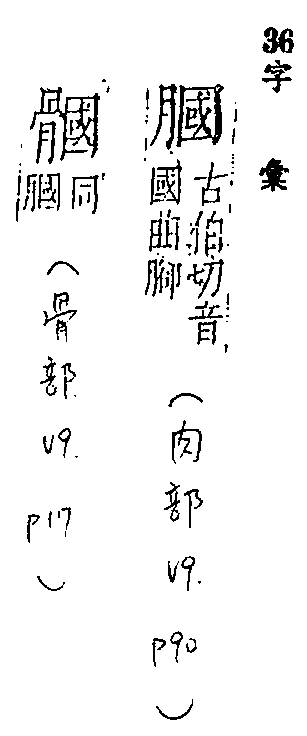 36字彙
膕 古伯切音
國曲腳
(肉部 V9. p90)
𩪐 同
膕
(骨部 V9. p17)